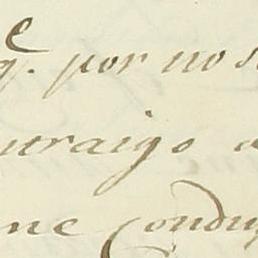 q.e por no s
uraigo a
ne Condu